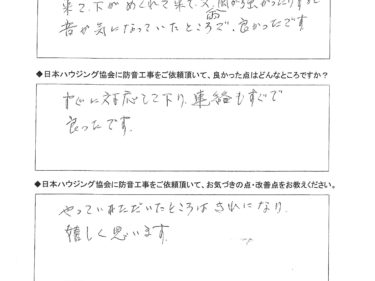 来て、下がめくれて来て、又、雨が強かったりすると
音が気になっていたところで、良かったです
◆日本ハウジング協会に防音工事をご依頼頂いて、良かった点はどんなところですか?
すぐに対応して下り、連絡もすぐで
良ったです。
◆日本ハウジング協会に防音工事をご依頼頂いて、お気づきの点・改善点をお教えください。
やっていただいたところはきれいになり、
嬉しく思います。